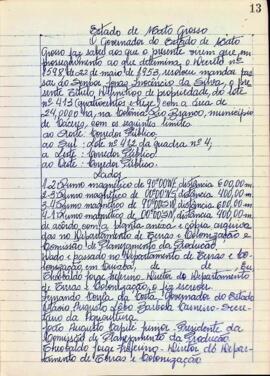 13
Estado de Mato Grosso
O Governador do Estado de Mato
Grosso faz saber aos que o presente virem que em
prosseguimento ao que determina o Decreto nº
1598 de 22 de maio de 1953, resolveu mandar pas
sar ao Senhor Inocêncio da Silva, o pre
sente Título definitivo de propriedade, do lote
nº 413 (quatrocentos e treze) com a área de
24,0000 ha, na Colônia Rio Branco, município
de Cáceres, com os seguintes limites
ao Norte: Corredor Público
ao Sul: lote nº 412 da quadra nº 4;
a Leste: Corredor Público
ao Oeste: Corredor Público.
Lados
1-2 Rumo magnético de distância 600,00 m
2-3 Rumo magnético de distância 400,00 m
3-4 Rumo magnético de distância 600,00 m
4-1 Rumo magnético de distância 400,00 m
de acôrdo com a planta anexa e cópia arquiva
da no Departamento de Terras e Colonização e
Comissão de Planejamento da Produção.
Dado e passado no Departamento de Terras e Co
lonização em Cuiabá, de de Eu
Diretor do Departamento
de Terras e Colonização, o fiz escrever.
Fernando Corrêa da Costa - Governador do Estado
Secre
tário da Agricultura
João Augusto Capilé Junior - Presidente da
Comissão de Planejamento da Produção.
Diretor do Depar
tamento de Terras e Colonização